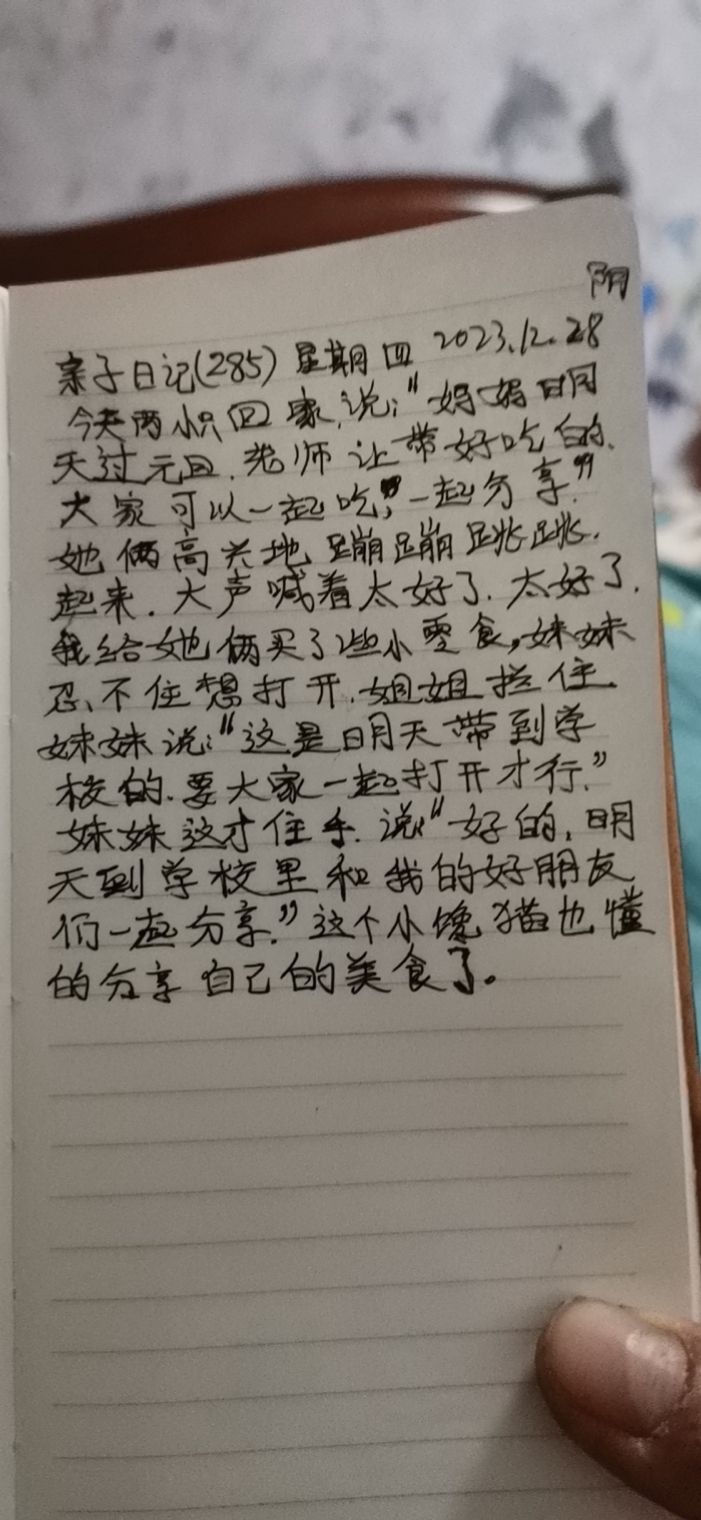 阴
亲子日记(285) 星期四 2023.12.28
今天两小只回家,说:"妈妈明
天过元旦.老师让带好吃的.
大家可以一起吃,一起分享."
她俩高兴地蹦蹦跳跳.
起来.大声喊着太好了.太好了.
我给她俩买了些小零食,妹妹
忍不住想打开.姐姐拦住
妹妹说:"这是明天带到学
校的.要大家一起打开才行."
妹妹这才住手.说:"好的,明
天到学校里和我的好朋友
们一起分享."这个小馋猫也懂
的分享自己的美食了。